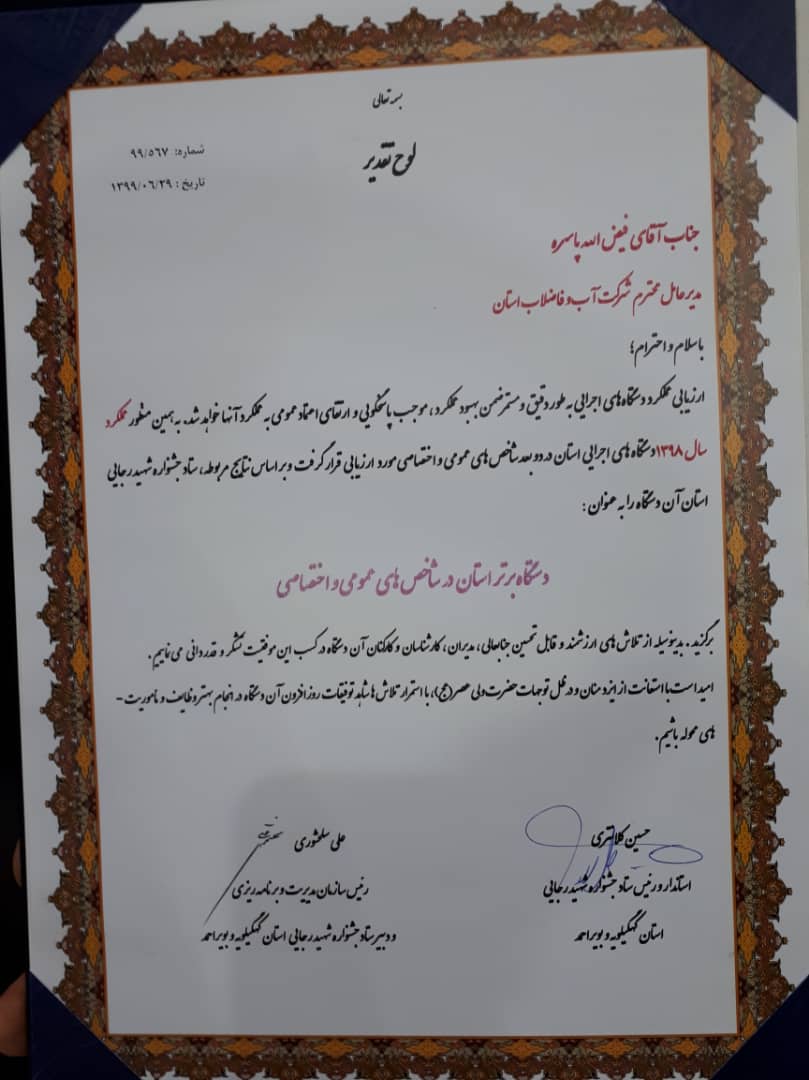 بسمه تعالی
لوح تقدیر
شماره: ۹۹/۵۶۷
تاریخ: ۱۳۹۹/۰۶/۲۹
جناب آقای فیض الله پاسره
مدیرعامل محترم شرکت آب و فاضلاب استان
با سلام و احترام؛
ارزیابی عملکرد دستگاه‌های اجرایی به طور دقیق و مستمر ضمن بهبود عملکرد، موجب پاسخگویی و ارتقای اعتماد عمومی به عملکرد آنها خواهد شد. به همین منظور عملکرد
سال ۱۳۹۸ دستگاه های اجرایی استان در دو بعد شاخص های عمومی و اختصاصی مورد ارزیابی قرار گرفت و بر اساس نتایج مربوطه، ستاد جشنواره شهید رجایی
استان آن دستگاه را به عنوان:
دستگاه برتر استان در شاخص های عمومی و اختصاصی
برگزید. بدینوسیله از تلاش های ارزشمند و قابل تحسین جنابعالی، مدیران، کارشناسان و کارکنان آن دستگاه در کسب این موفقیت تشکر و قدردانی می نمایم.
امید است با استعانت از ایزد منان و در ظل توجهات حضرت ولی عصر (عج)، با استمرار تلاش ها شاهد توفیقات روزافزون آن دستگاه در انجام بهتر وظایف و ماموریت-
های محوله باشیم.
حسین کلانتری
استاندار و رئیس ستاد جشنواره شهید رجایی
استان کهگیلویه و بویراحمد
علی سلحشوری
رئیس سازمان مدیریت و برنامه ریزی
و دبیر ستاد جشنواره شهید رجایی استان کهگیلویه و بویراحمد